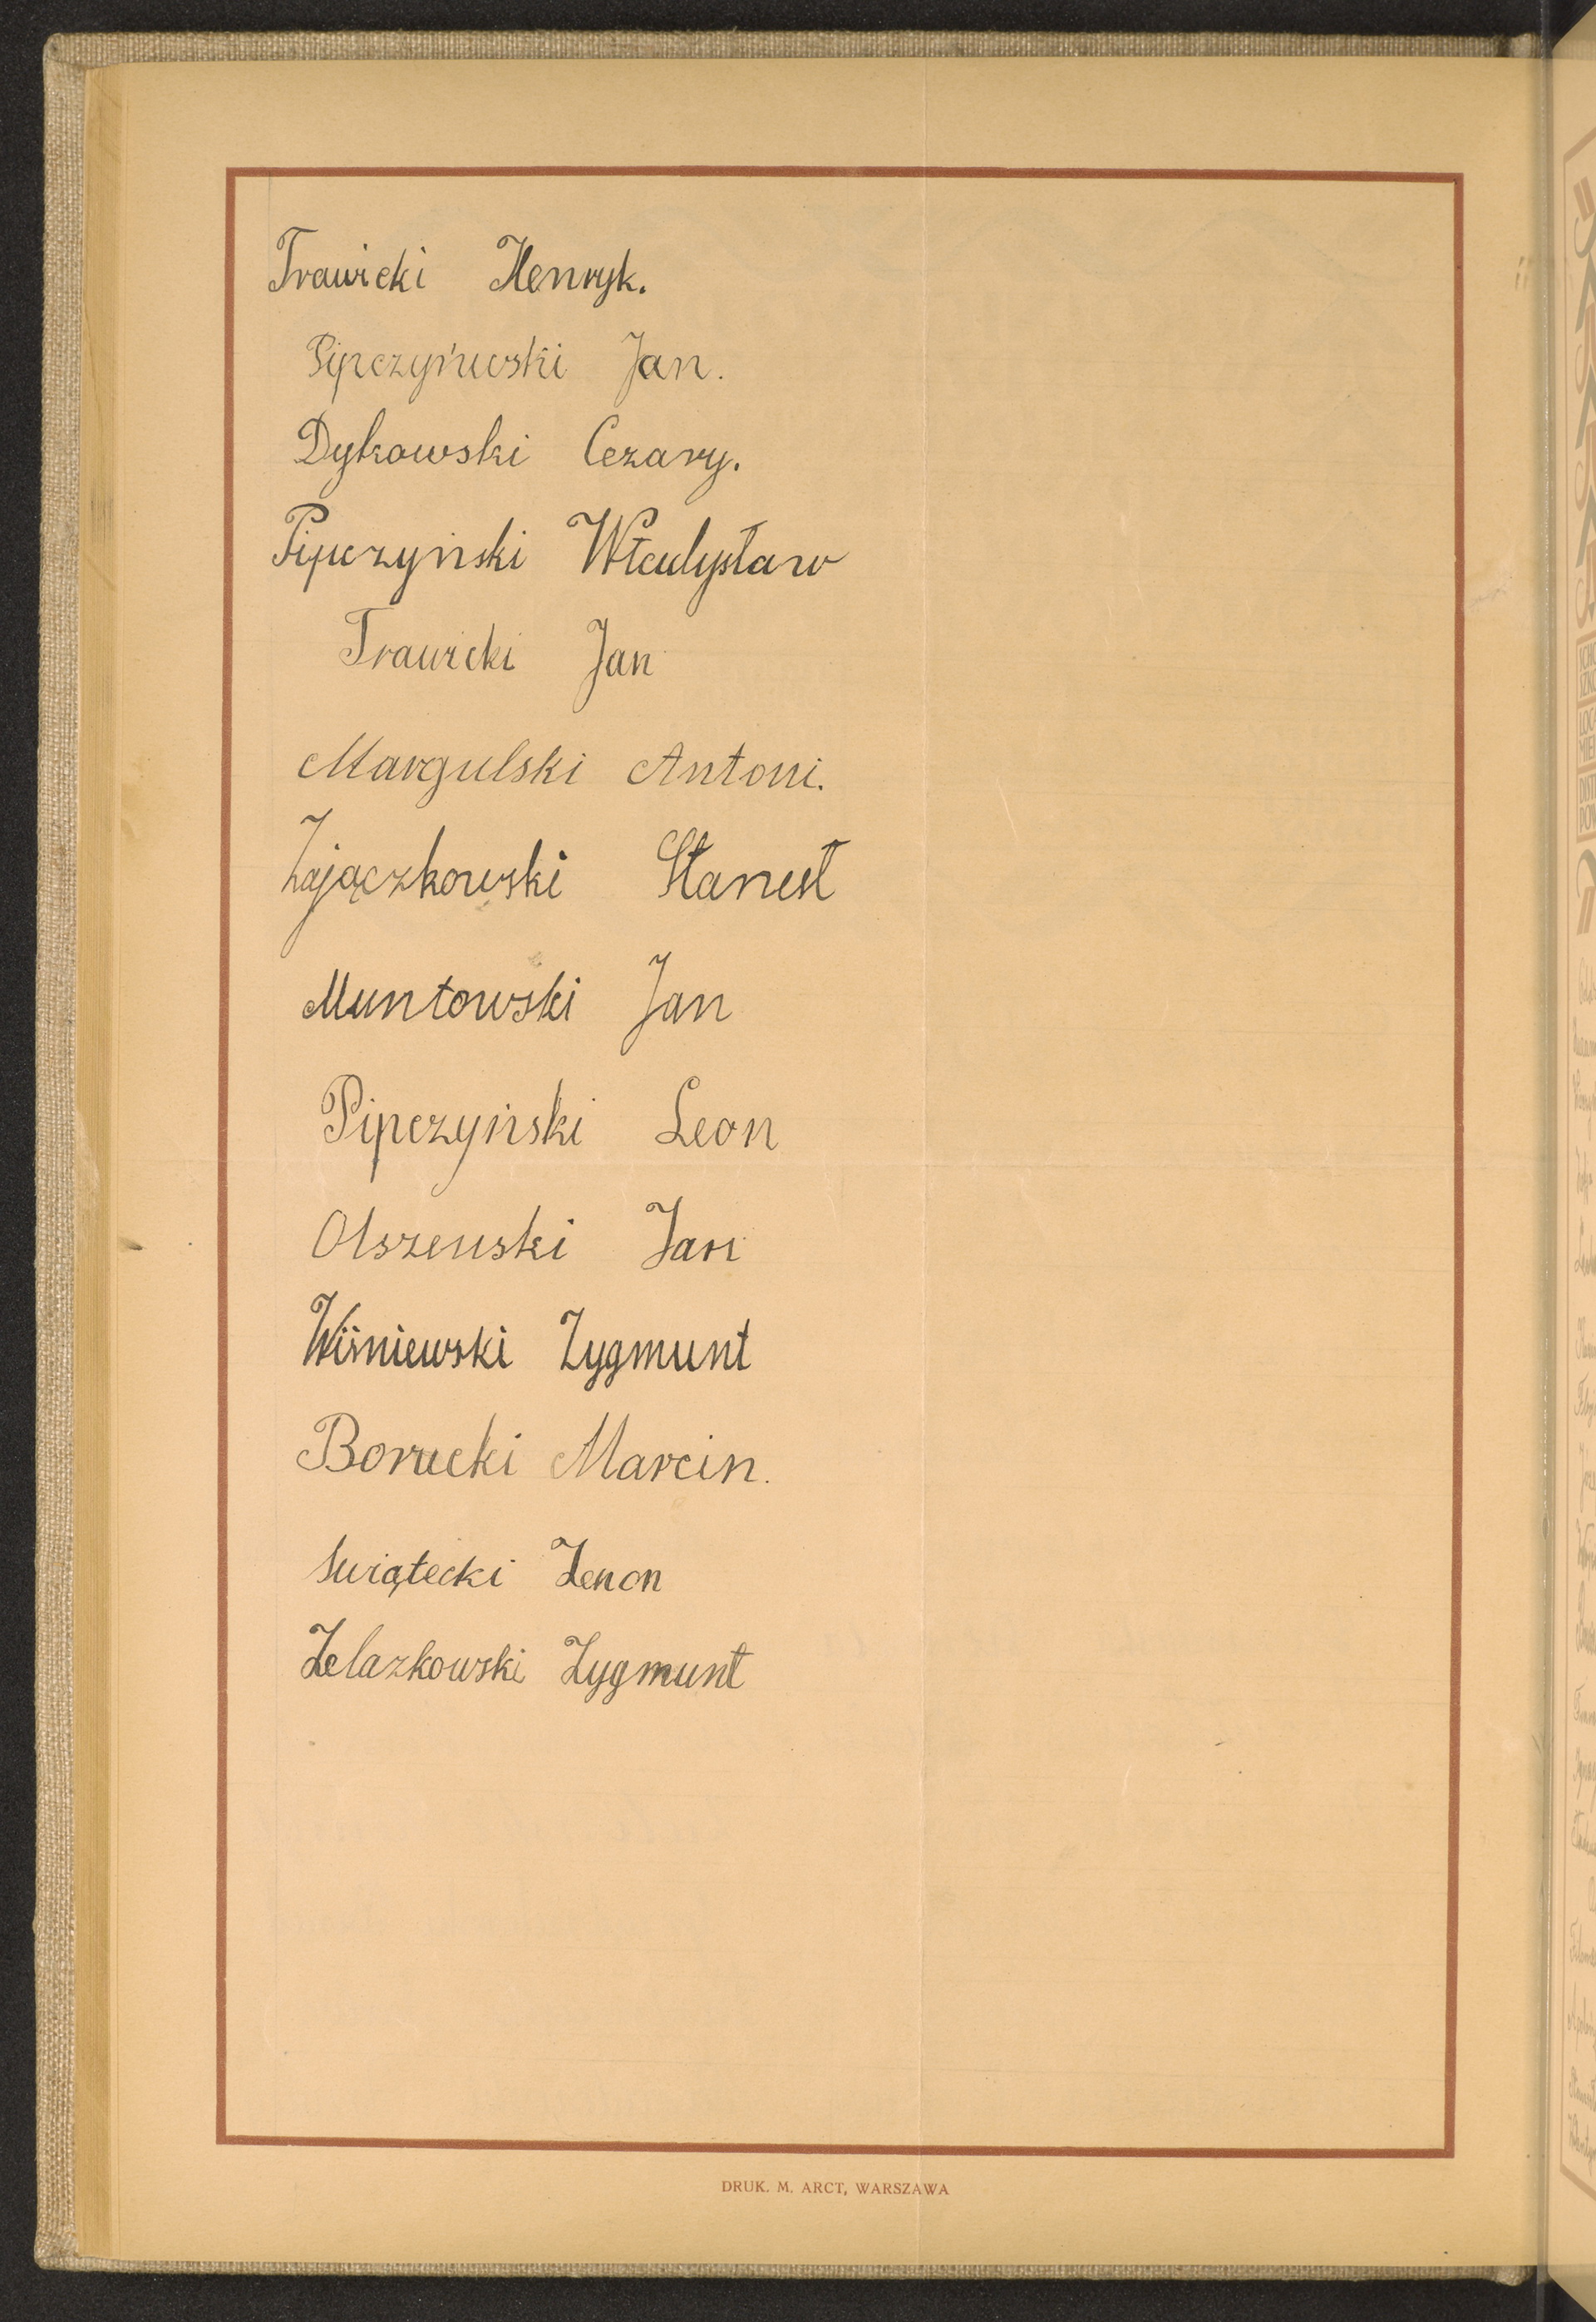 Trawicki Henryk.
Pipczyńwski Jan.
Dykowski Cezary.
Pipczyński Władysław
Trawicki Jan
Margulski Antoni.
Zajączkowski Stanisł
Muntowski Jan
Pipczyński Leon
Olszewski Jan
Wiśniewski Zygmunt
Borucki Marcin.
Swiątecki Zenon
Żelazkowski Zygmunt
DRUK. M. ARCT, WARSZAWA